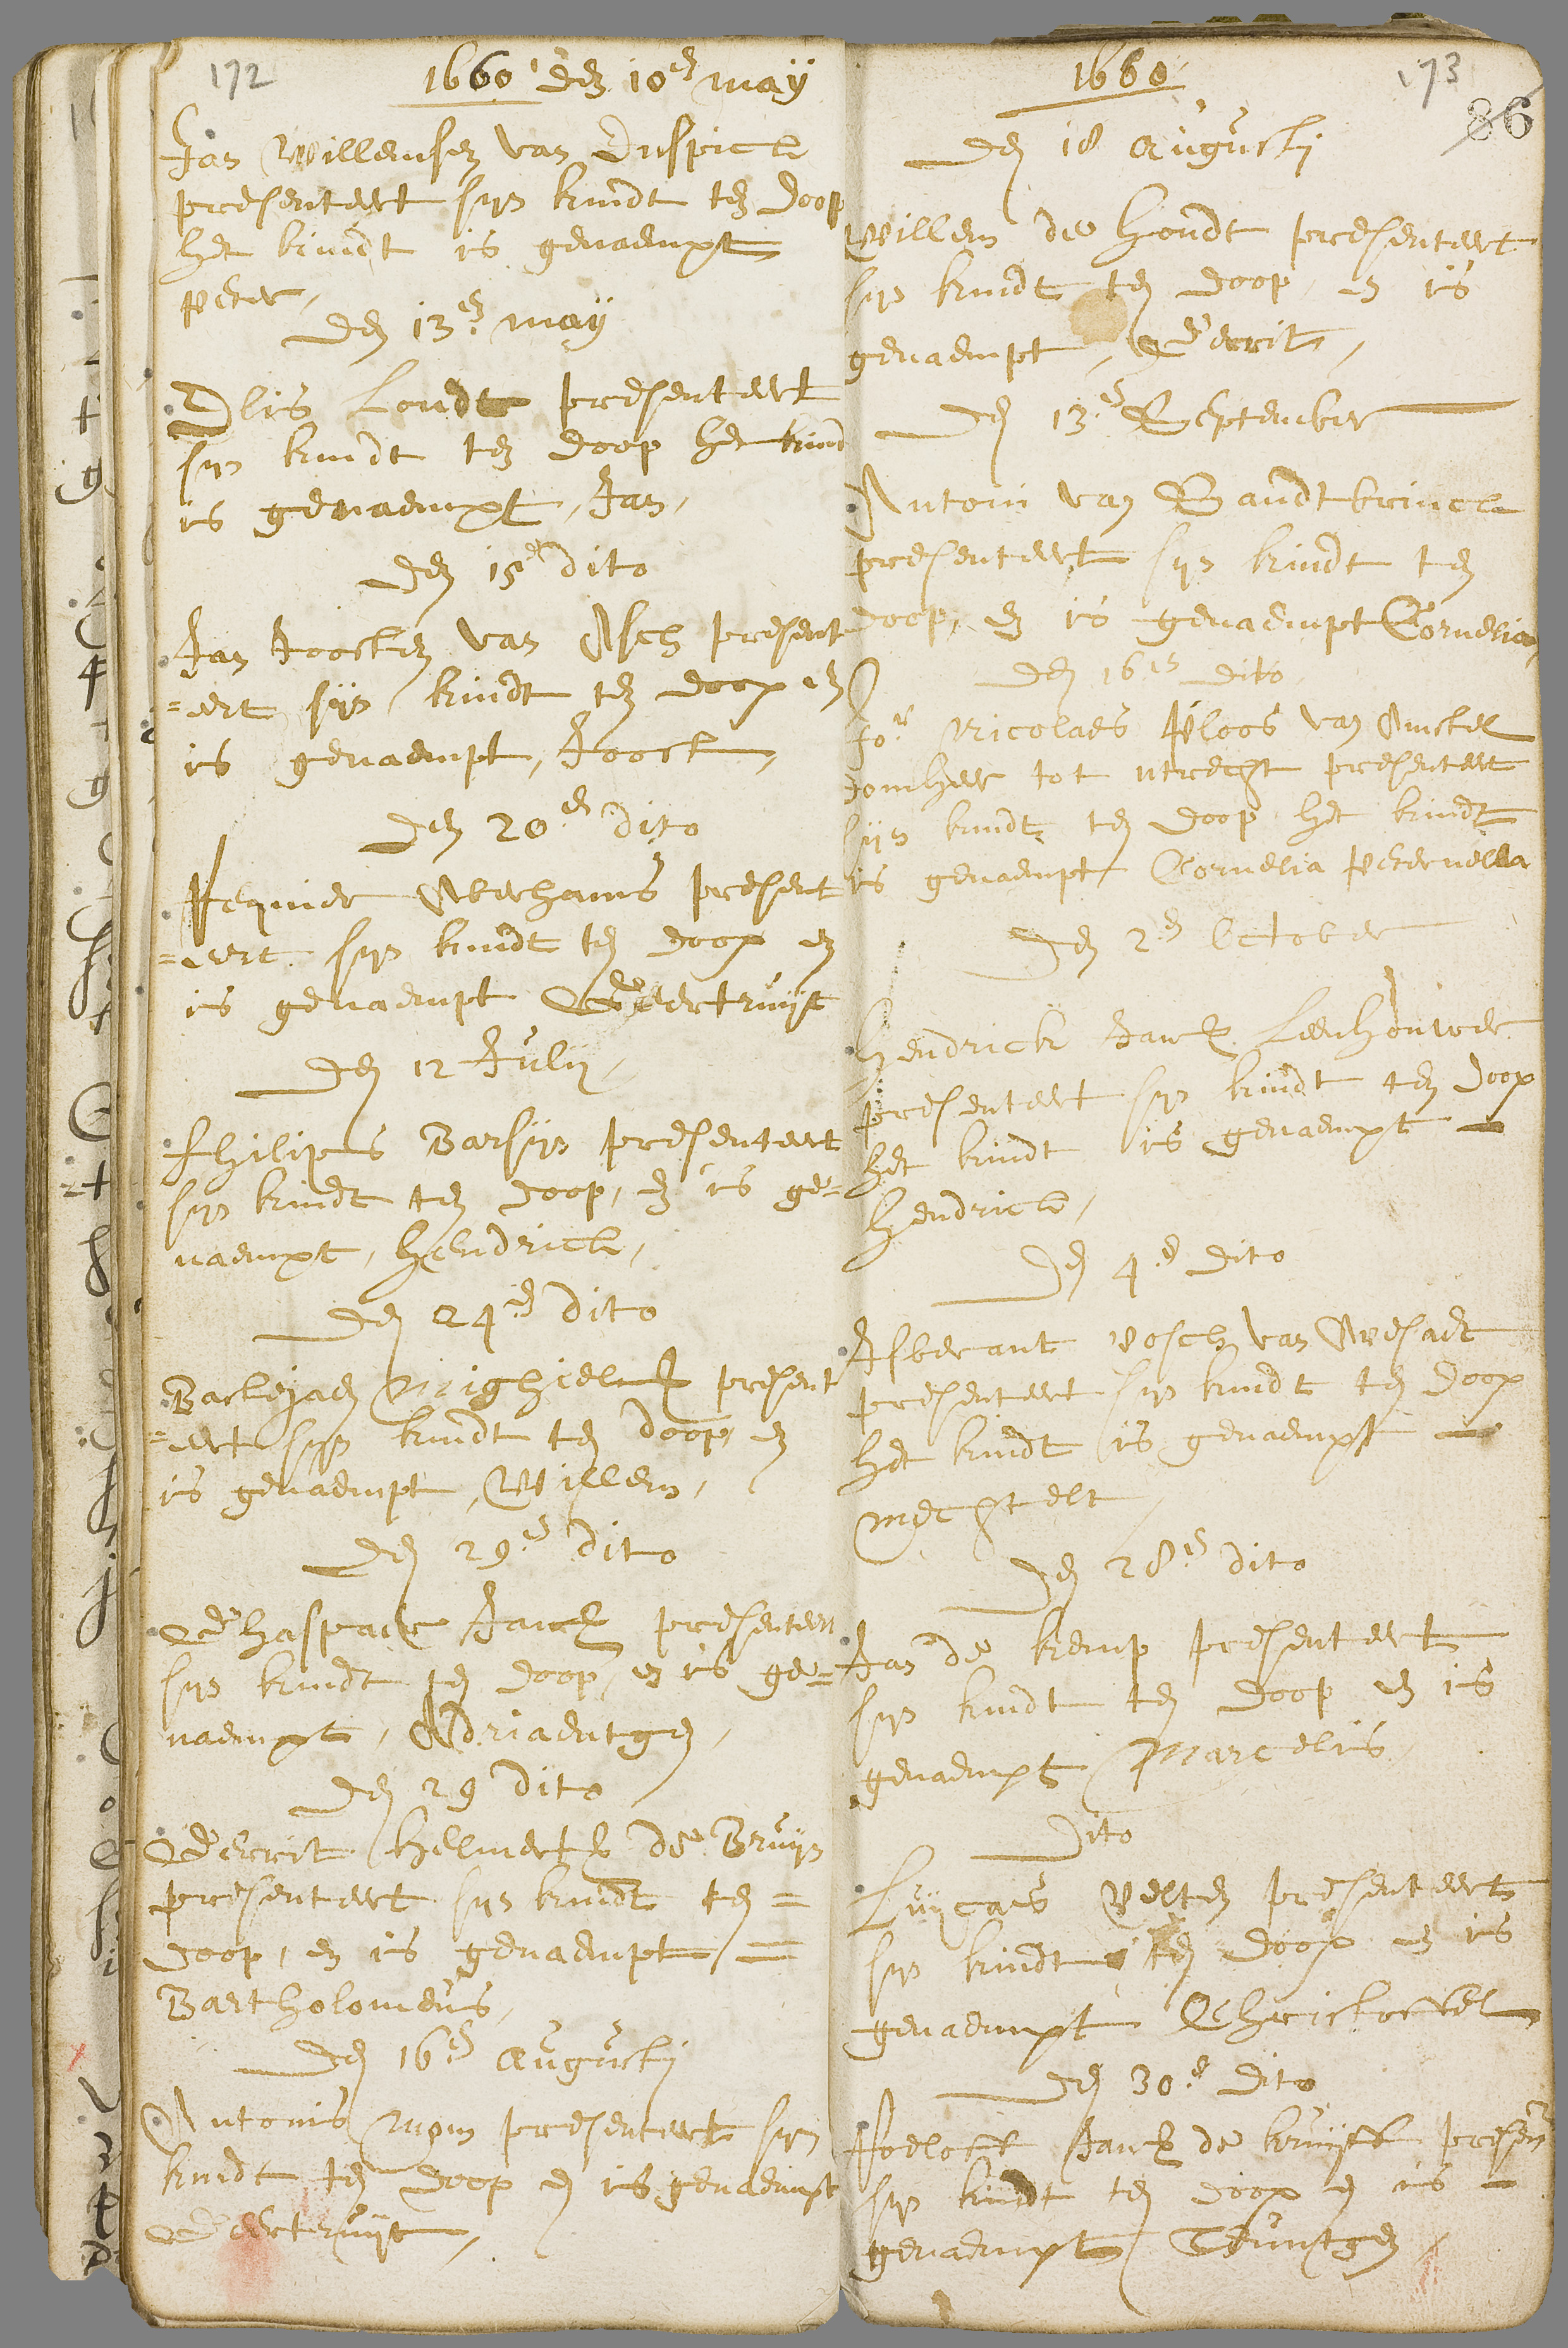 172
1660 den 10en maÿ
Jan Willemsen van Duspick
presenteert syn kindt ten doop
het kindt is genaempt
peter,
den 13en maÿ
Dlis Londt presenteert
syn kindt ten doop het kind
is genaempt, Jan,
den 15en dito
Jan Joosten van Asch present
=ert sijn kindt ten doop en
is genaempt, Joost,
den 20en dito
Reynier Aberhams present
=eert syn kindt ten doop en
is genaempt Geertruijt
den 12 Julij,
Philipus Barsijn presenteert
syn kindt ten doop, en is ge=
naempt, hendrick,
den 24en dito
Bastejaen Mighielss present
=eert syn kindt ten doop, en
is genaempt, Willem,
den 29en dito
Ghaspaer Janss presenteert
syn kindt ten doop, en is ge=
naempt, Adriaentgen,
den 29 dito
Gerrit Helmertss de Bruijn
presenteert syn kindt ten =
doop, en is genaempt =
Bartholomeus,
den 16en Augusti
Antonis mom presenteert syn
kindt ten doop en is genaempt
Geertruijt,
1660
173
86
den 18 Augusti
Willem de Hondt presenteert
syn kindt ten doop, en is
genaempt, Gerrit,
den 13en September
Antoni van Sandtbrinck
presenteert syn kindt ten
doop, en is genaempt Cornelia,
den 16en dito,
Jor Nicolaes Ploos van Amstel
domheer tot utrecht presenteert
sijn kindt ten doop het kindt
is genaempt Cornelia peternella
den 2en October
Hendrick Janss Leenhouwer
presenteert syn kindt ten doop
het kindt is genaempt
hendrick,
den 4en dito
Isberant vosch van Avesaet
presenteert syn kindt ten doop
het kindt is genaempt
mechtelt,
den 28en dito
Jan de kemp presenteert
syn kindt ten doop en is
genaempt Marcelis,
Dito
Luijcas Velten presenteert
syn kindt ten doop en is
genaempt Christoffel
den 30en dito
Roeloff Janss de kruijff presen
syn kindt ten doop en is
genaempt Teuntgen,